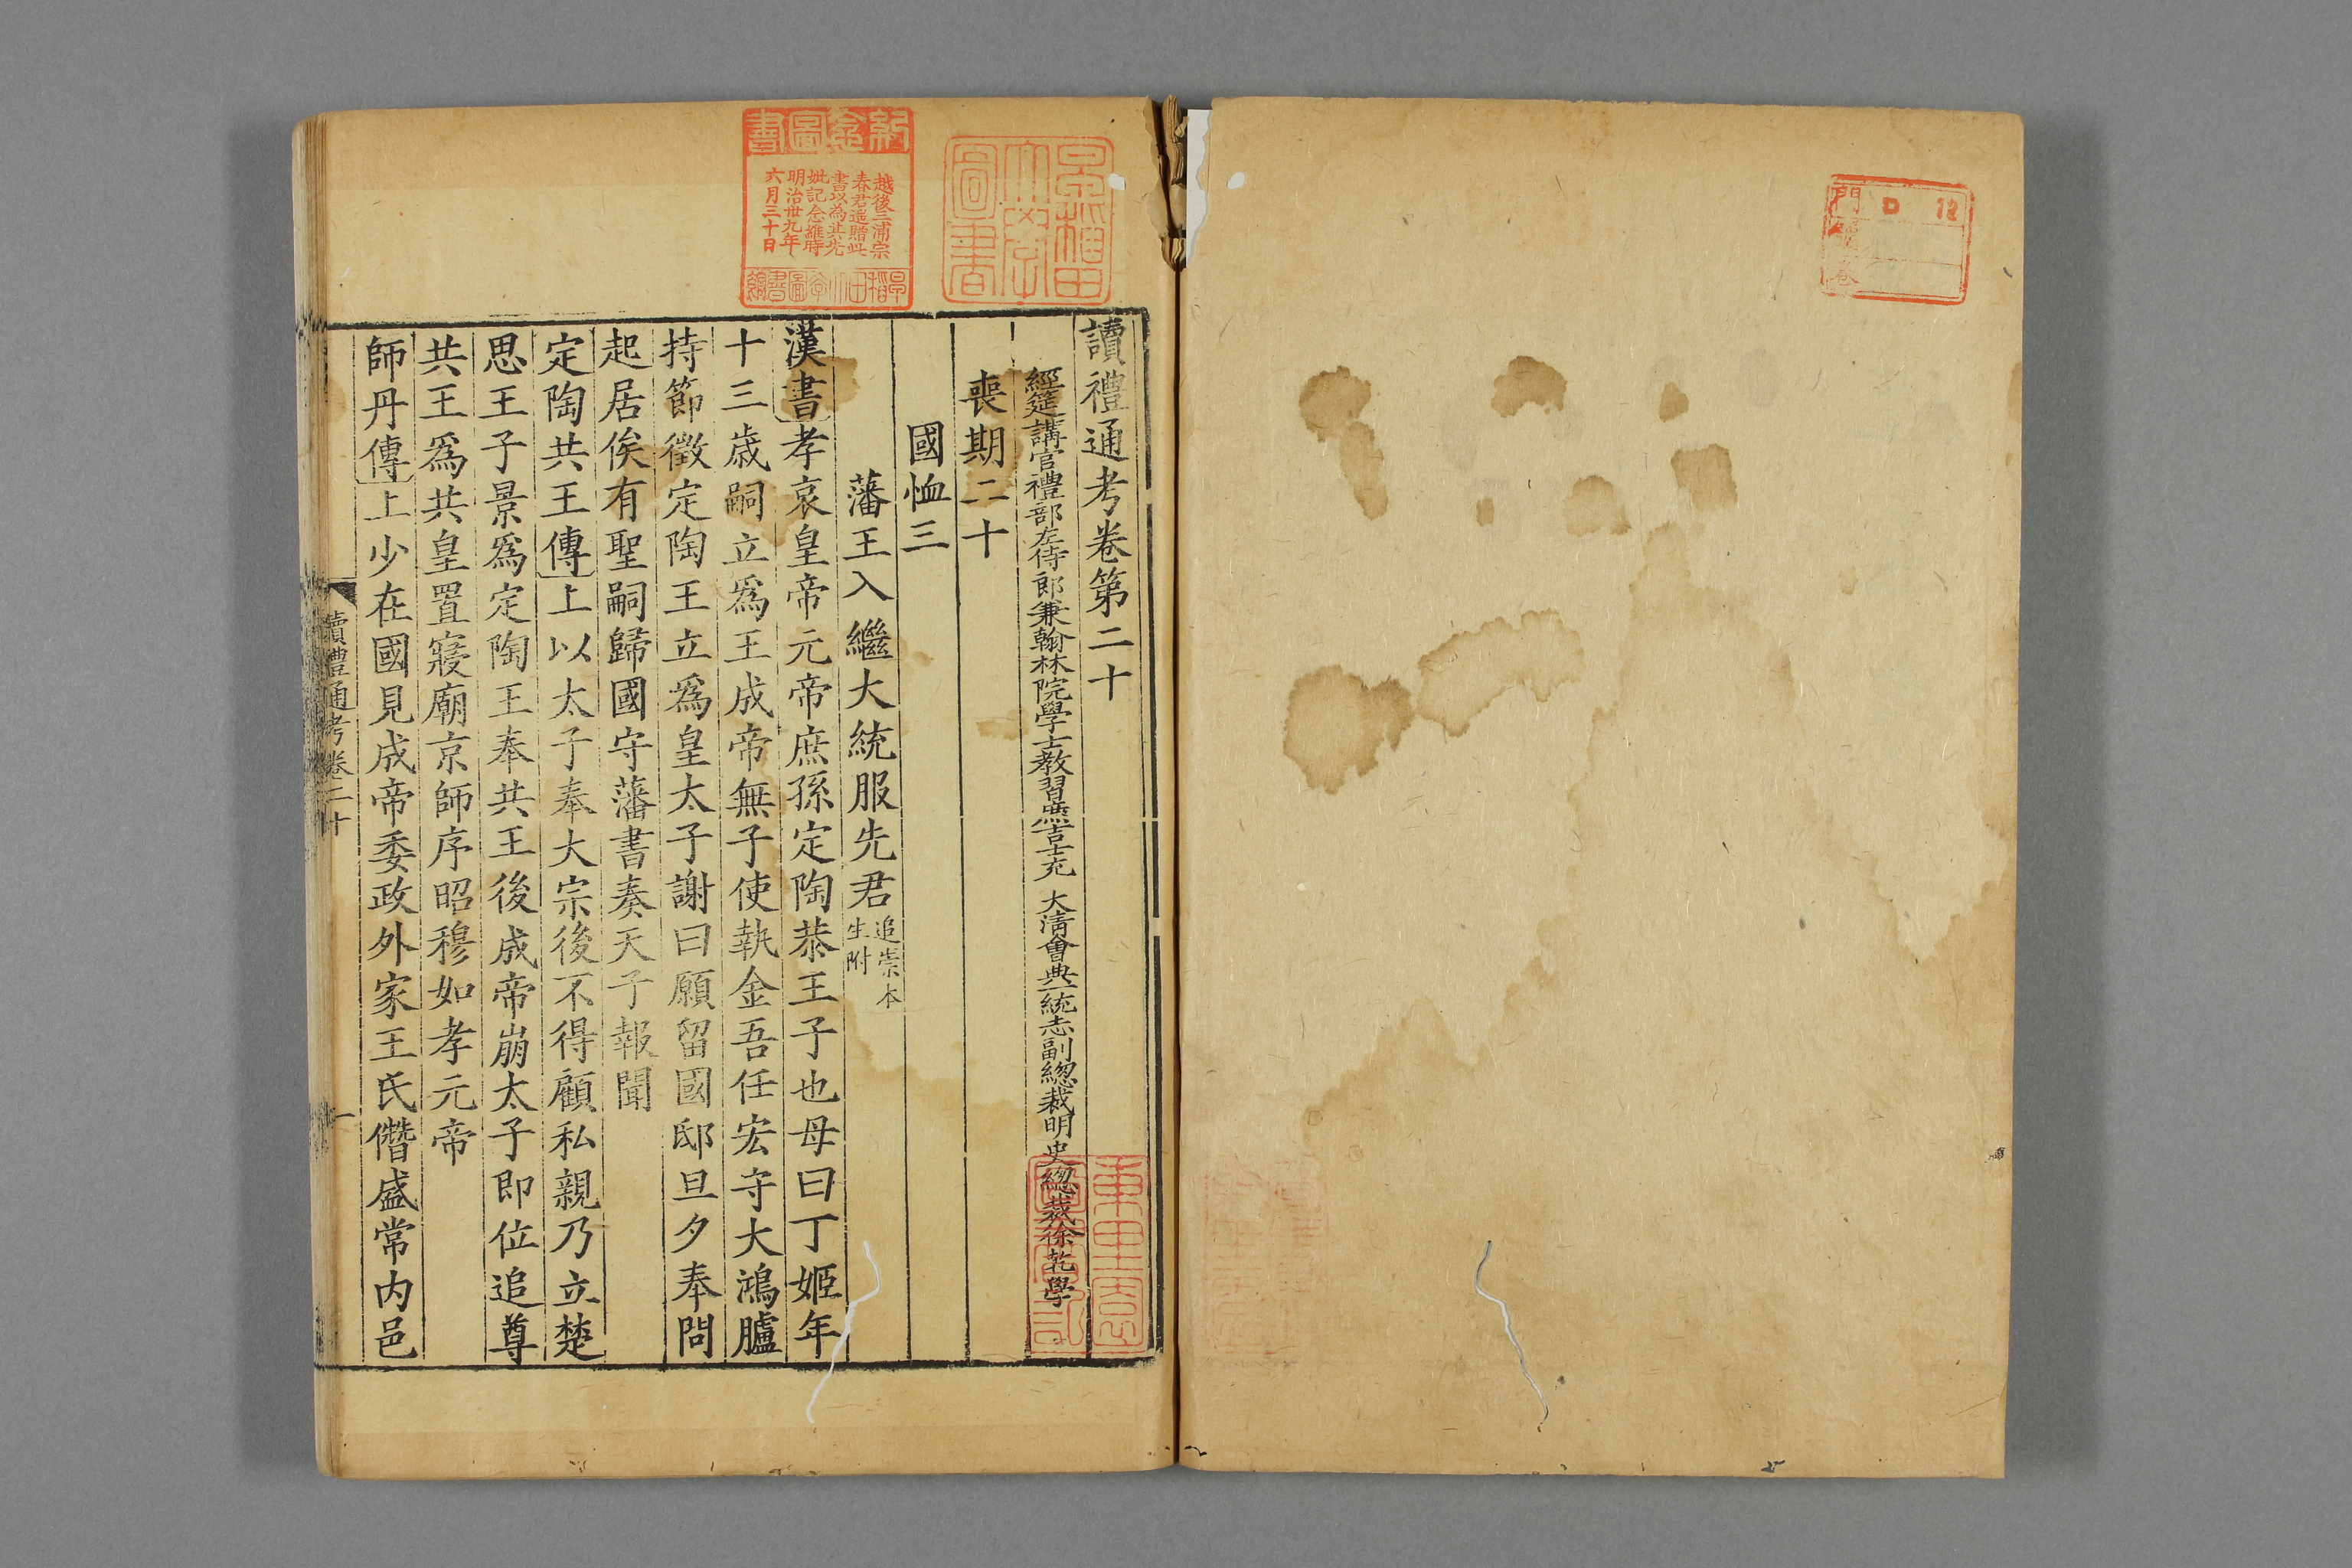 門 號 卷
D 12
讀禮通考卷第二十
經筵講官禮部左侍郎兼翰林院學士教習庶吉士充 大清會典一統志副總裁明史總裁徐乾學
喪期二十
國恤三
藩王入繼大統服先君追崇本生附
漢書孝哀皇帝元帝庶孫定陶恭王子也母曰丁姬年
十三歲嗣立爲王成帝無子使執金吾任宏守大鴻臚
持節徵定陶王立爲皇太子謝曰願留國邸旦夕奉問
起居俟有聖嗣歸國守藩書奏天子報聞
定陶共王傳上以太子奉大宗後不得顧私親乃立楚
思王子景爲定陶王奉共王後成帝崩太子即位追尊
共王爲共皇置寢廟京師序昭穆如孝元帝
師丹傳上少在國見成帝委政外家王氏僭盛常內邑
讀禮通考卷二十
一
早稻田大學圖書
紀念圖書
越後三浦宗
春君遥贈此
書以為其先
妣記念維時
明治卅九年
六月三十日
早稻田大學圖書館